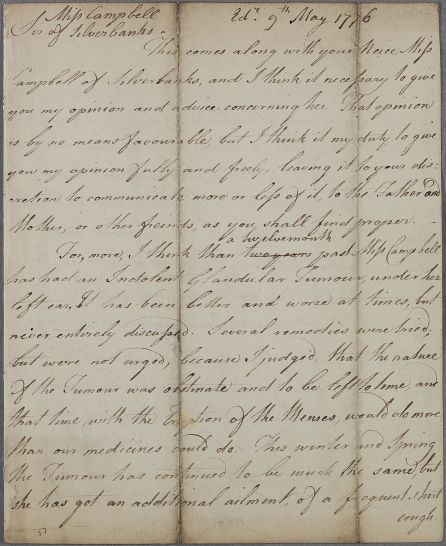 Miss Campbell
of Silverbanks
Edr. 9th May 1776
Sir
This comes along with your Neice Miss
Campbell of Silverbanks, and I think it necessary to give
you my opinion and advice concerning her. That opinion
is by no means favourable but I think it my duty to give
you my opinion fully and freely, leaving it to your dis-
cretion to communicate more or less of it, to the Father and
Mother, or other friends, as you shall find proper.
a twelvemonth
For, more, I think than two years past Miss Campbell
has had an Indolent Glandular Tumour, under her
left ear, It has been better and worse at times, but
never entirely discussed. Several remedies were tried,
but were not urged, because I judged, that the nature
of the Tumour was obstinate and to be left to time, and
that time, with the Eruption of the Menses, would do more
than our medicines could do. This winter and Spring
the Tumour has continued to be much the same, but
she has got an additional ailment, of a frequent short
cough